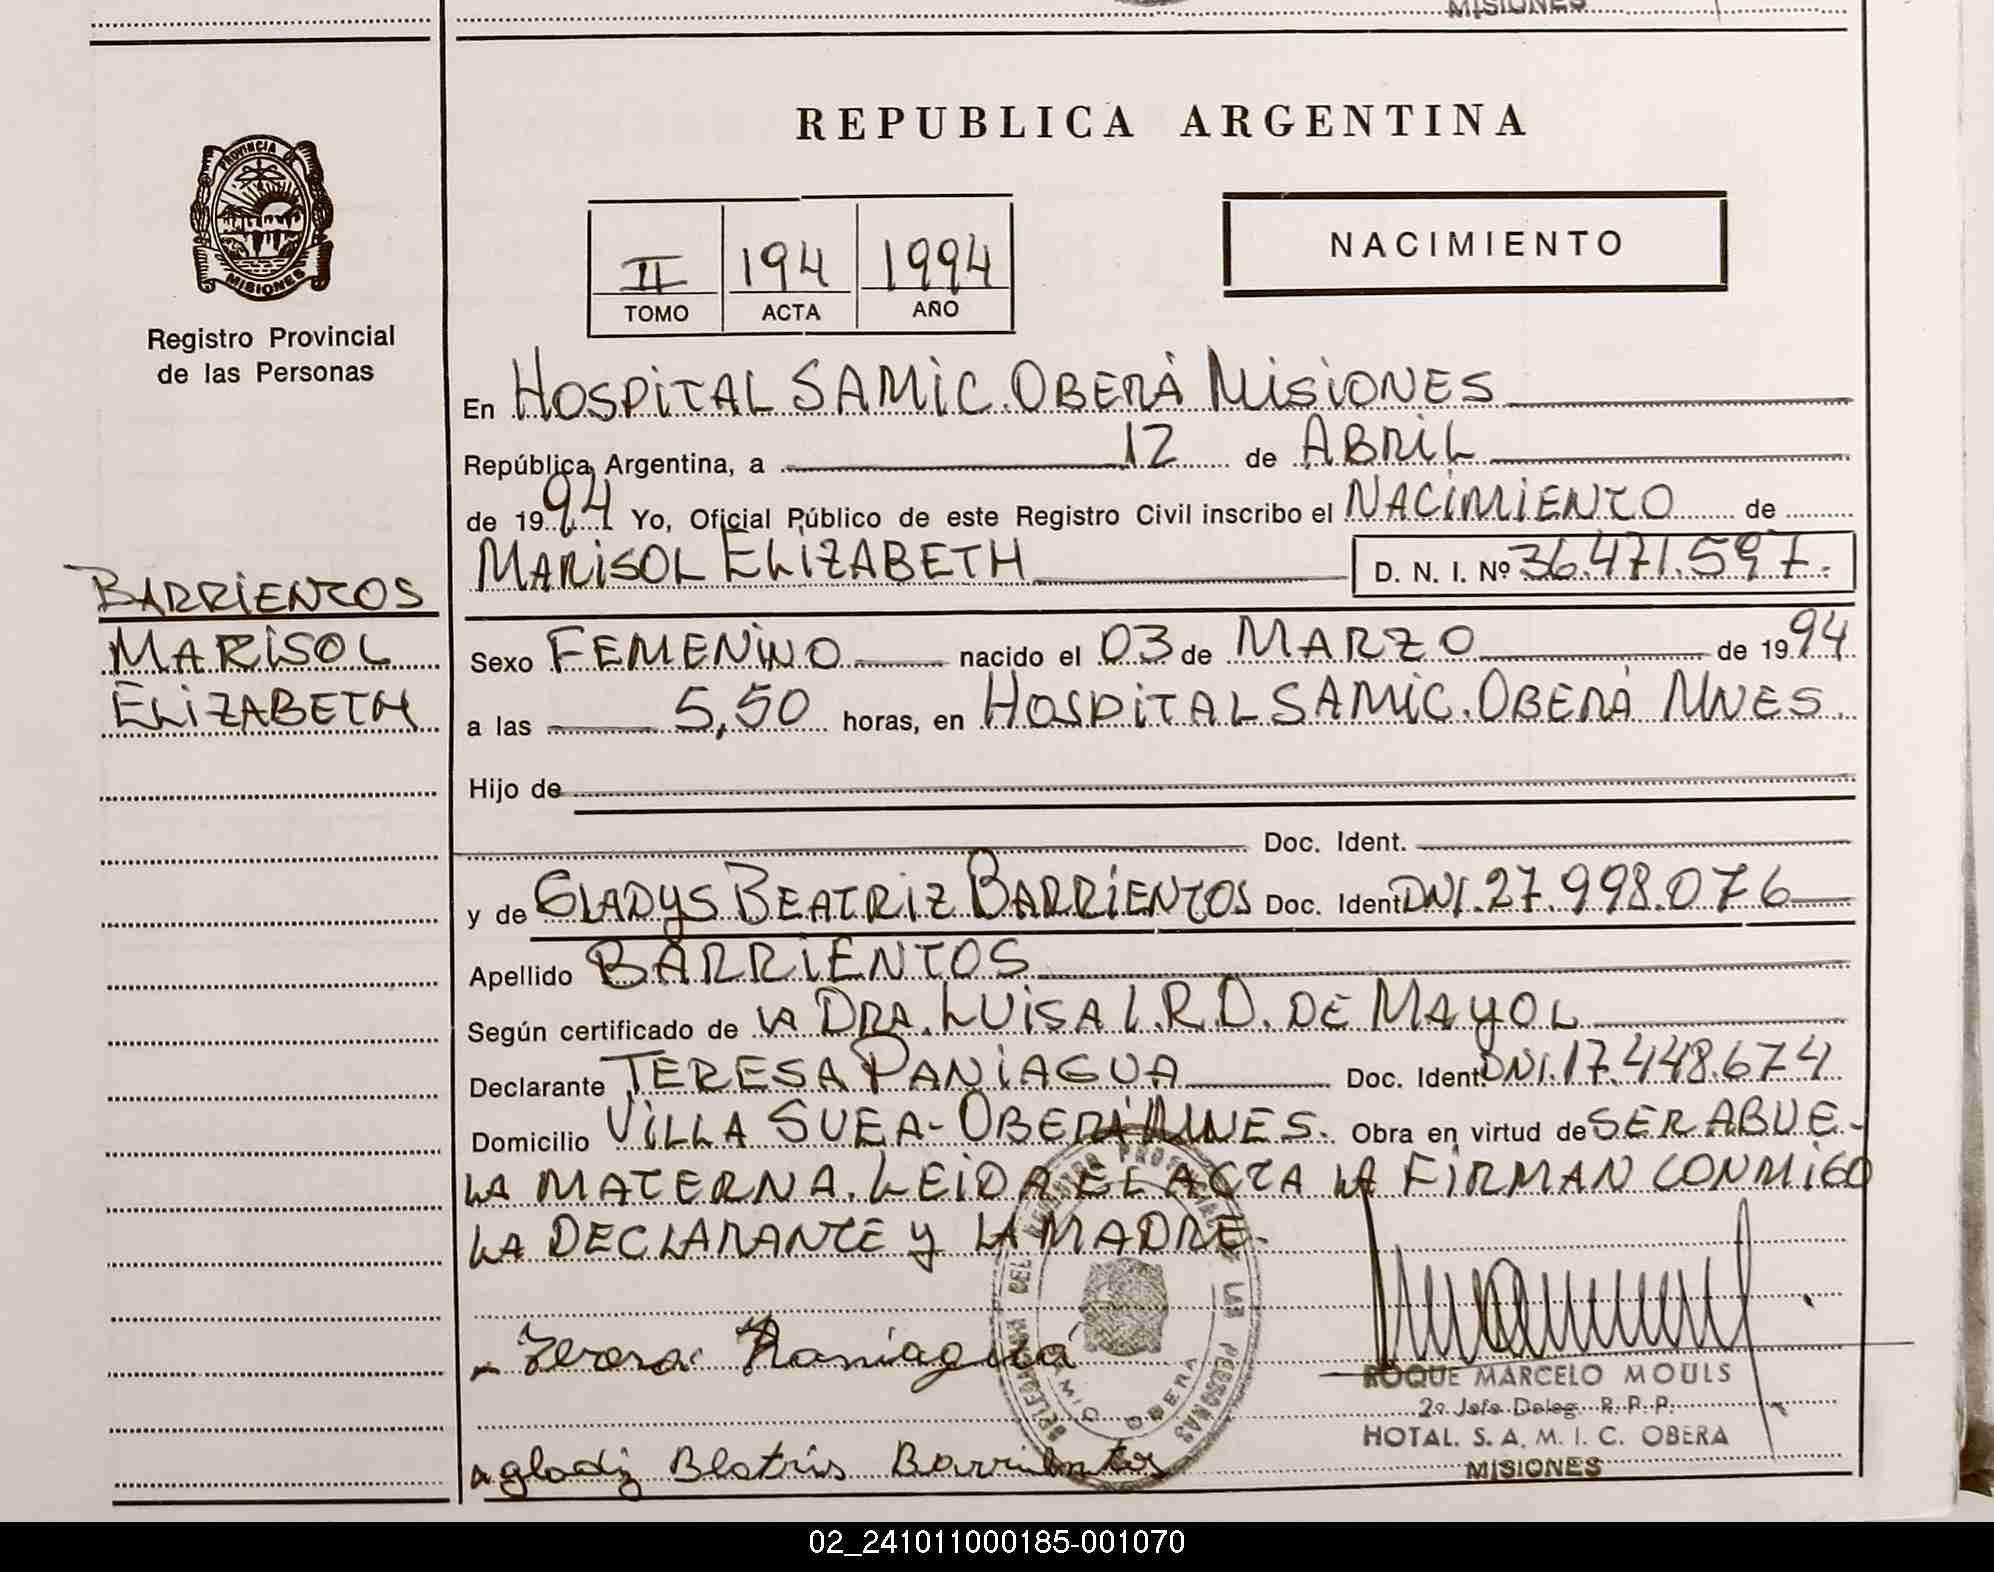 MISIONES
REPUBLICA ARGENTINA
PROVINCIA DE
MISIONES
Registro Provincial
de las Personas
II 194 1994
TOMO ACTA AÑO
NACIMIENTO
En HOSPITAL SAMIC. OBERÁ MISIONES
República Argentina, a 12 de ABRIL
de 1994 Yo, Oficial Público de este Registro Civil inscribo el NACIMIENTO de
MARISOL ELIZABETH D. N. I. Nº 36.471.597.
BARRIENTOS
MARISOL
ELIZABETH
Sexo FEMENINO nacido el 03 de MARZO de 1994
a las 5,50 horas, en HOSPITAL SAMIC. OBERÁ MNES.
Hijo de
Doc. Ident.
y de GLADYS BEATRIZ BARRIENTOS Doc. Ident. DNI. 27.998.076
Apellido BARRIENTOS
Según certificado de LA DRA. LUISA I. R. D. DE MAYOL
Declarante TERESA PANIAGUA Doc. Ident. DNI. 17.448.674
Domicilio VILLA SUEA - OBERÁ MNES. Obra en virtud de SER ABUE-
LA MATERNA. LEIDA EL ACTA LA FIRMAN CONMIGO
LA DECLARANTE Y LA MADRE.
Teresa Paniagua
ROQUE MARCELO MOULS
2º Jefe Deleg. R. P. P.
HOTAL. S. A. M. I. C. OBERA
MISIONES
gladiz Beatris Barrientos
DELEGACION DEL REGISTRO PROVINCIAL DE LAS PERSONAS
SAMIC OBERA
02_241011000185-001070